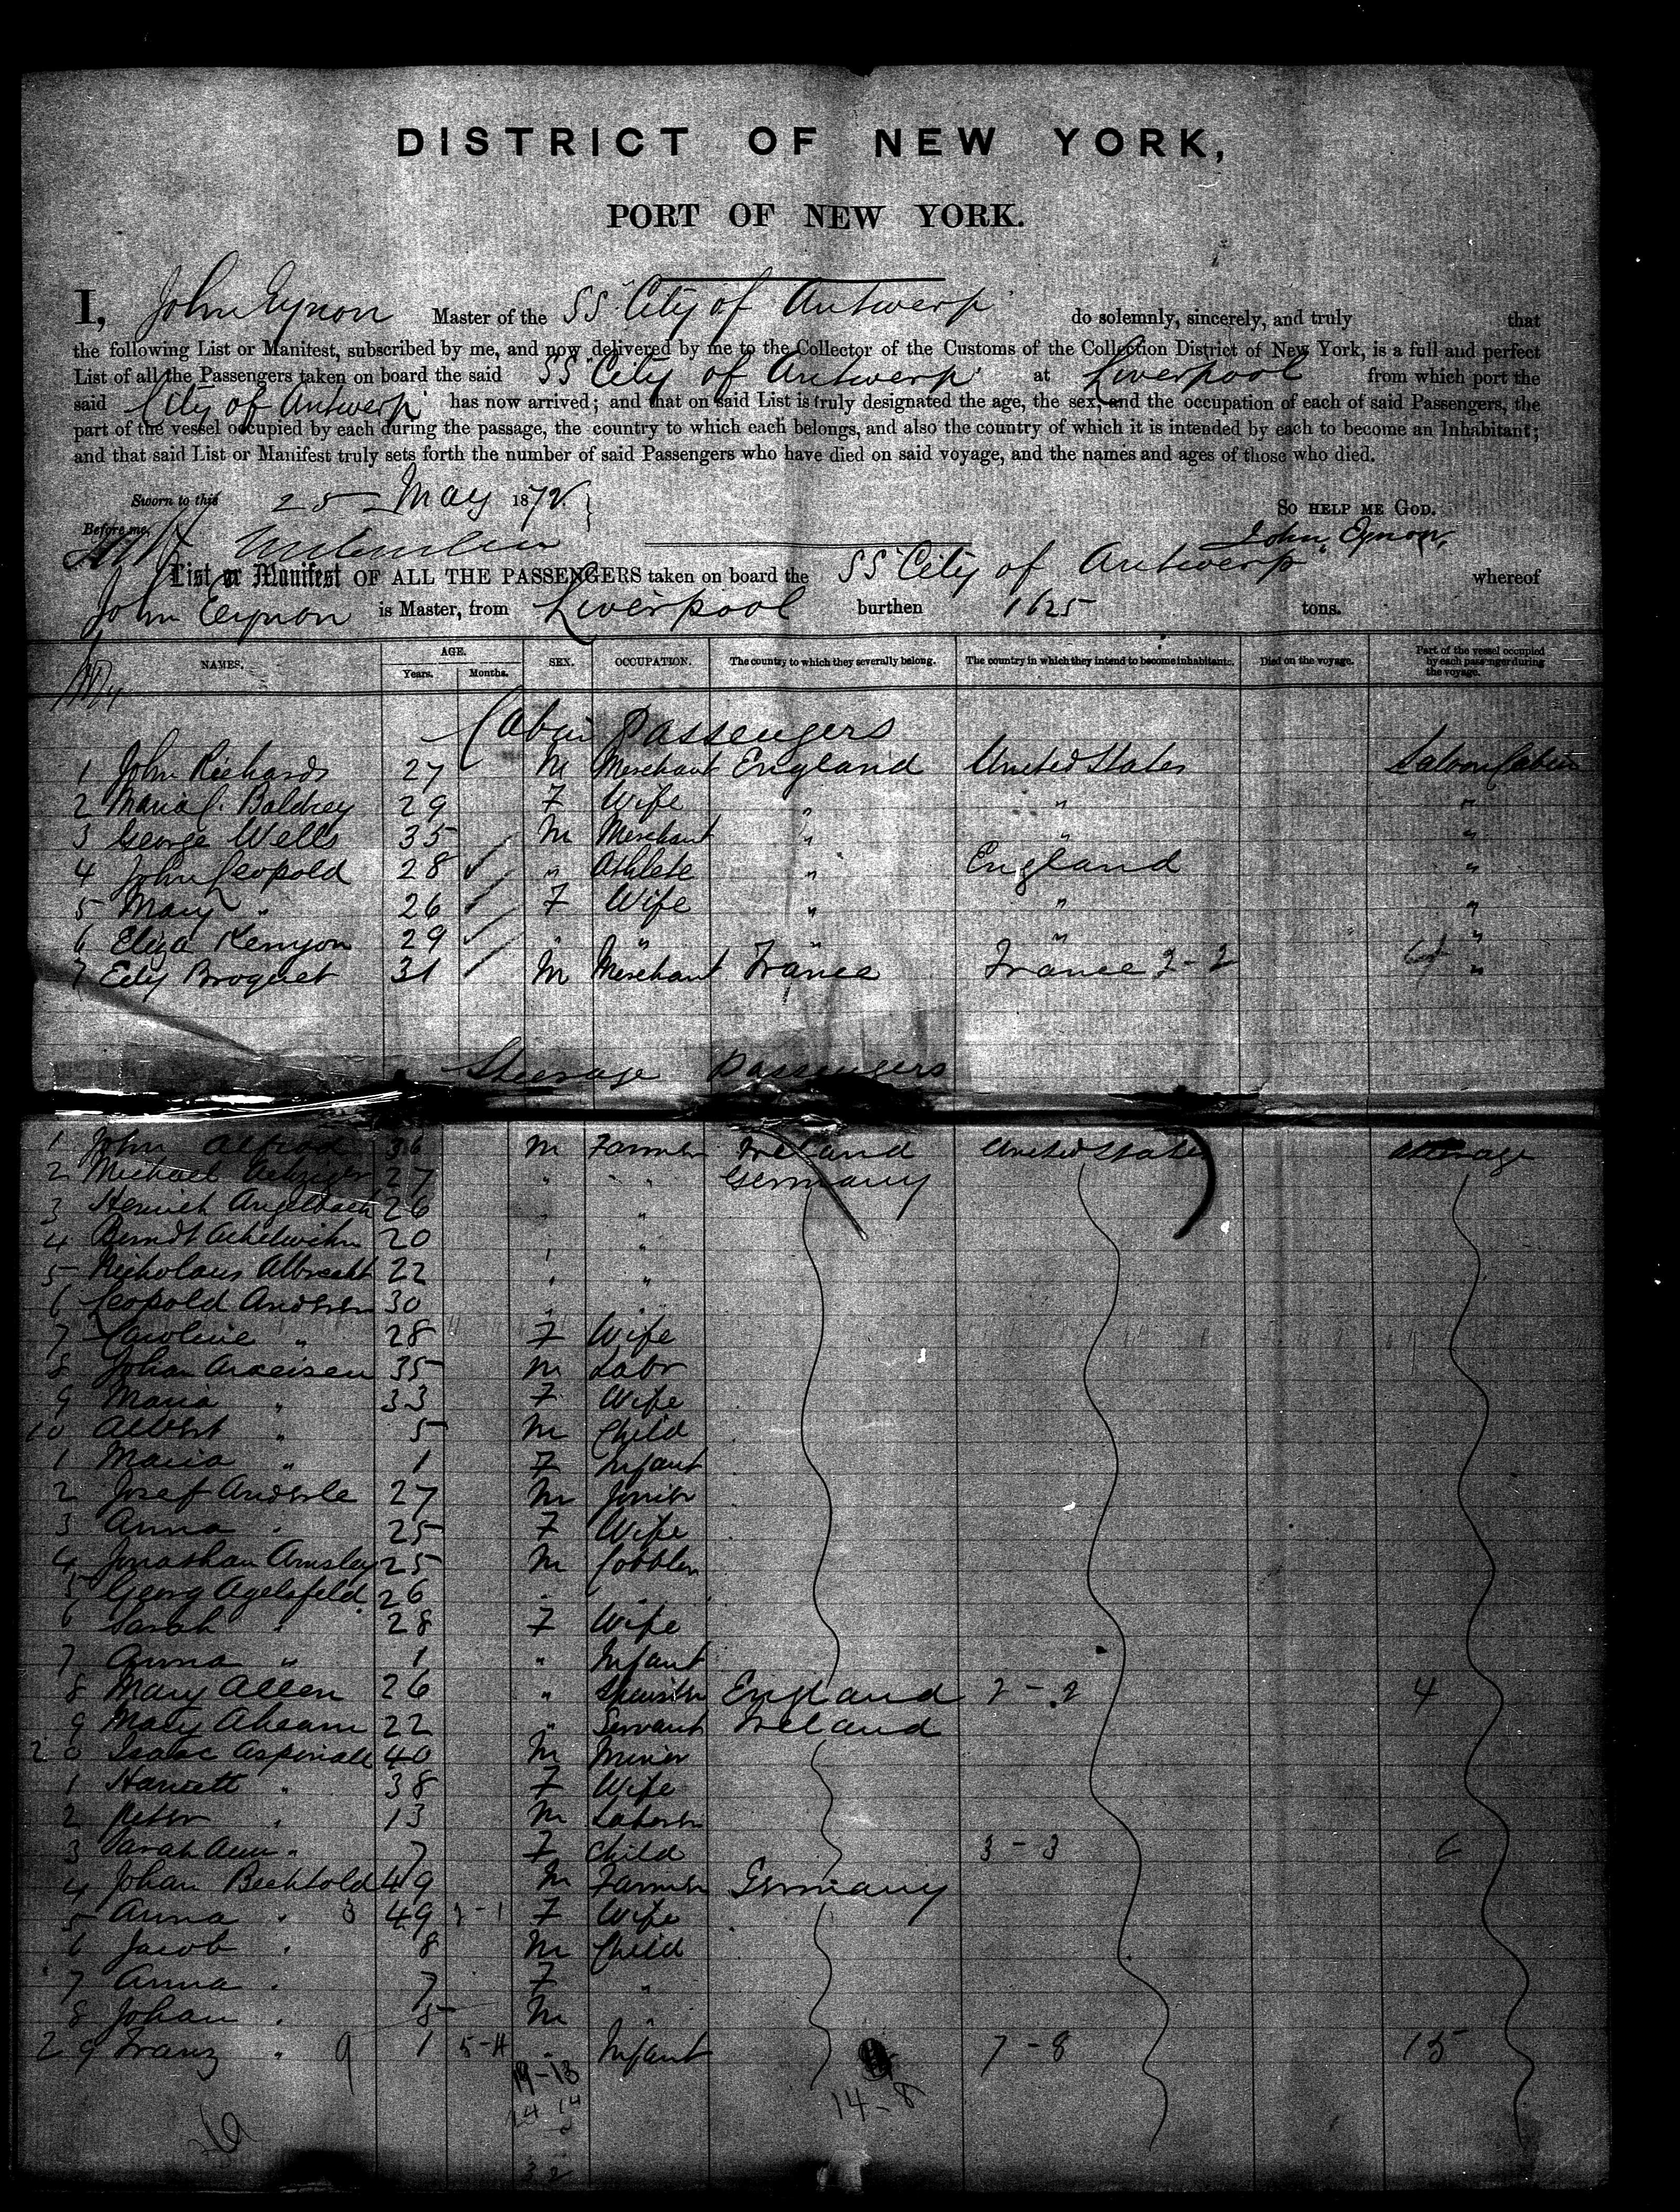 DISTRICT OF NEW YORK,
PORT OF NEW YORK.
I, John Eynon Master of the SS "City of Antwerp" do solemnly, sincerely, and truly that
the following List or Manifest, subscribed by me, and now delivered by me to the Collector of the Customs of the Collection District of New York, is a full and perfect
List of all the Passengers taken on board the said SS "City of Antwerp" at Liverpool from which port the
said City of Antwerp has now arrived; and that on said List is truly designated the age, the sex, and the occupation of each of said Passengers, the
part of the vessel occupied by each during the passage, the country to which each belongs, and also the country of which it is intended by each to become an Inhabitant;
and that said List or Manifest truly sets forth the number of said Passengers who have died on said voyage, and the names and ages of those who died.
Sworn to this 25 May 1872. So HELP ME GOD.
Before me, John Eynon,
List or Manifest OF ALL THE PASSENGERS taken on board the SS "City of Antwerp" whereof
John Eynon is Master, from Liverpool burthen 1625 tons.
NAMES. AGE. Years. Months. SEX. OCCUPATION. The country to which they severally belong. The country in which they intend to become inhabitants. Died on the voyage. Part of the vessel occupied by each passenger during the voyage.
Cabin Passengers
1 John Richards 27 M Merchant England United States Saloon Cabin
2 Maria C. Baldrey 29 F Wife " " "
3 George Wells 35 M Merchant " " "
4 John Leopold 28 " Athlete " England "
5 Mary " 26 F Wife " " "
6 Eliza Kenyon 29 " " " " "
7 Edy Broquet 31 M Merchant France France 2-2 "
Steerage Passengers
1 John 36 M Farmer Ireland United States Steerage
2 Michael 27 " " Germany
3 Henrich Angelbach 26 " "
4 Berndt 20 " "
5 Nicholaus Albrecht 22 " "
6 Leopold Andersen 30 " "
7 Caroline " 28 F Wife
8 Johan 35 M Labr
9 Maria " 33 F Wife
10 Albert " 5 M Child
1 Maria " 1 F Infant
2 Josef Anderle 27 M Joiner
3 Anna " 25 F Wife
4 Jonathan Amsley 25 M Cobbler
5 Georg Agelsfeld 26 " "
6 Sarah " 28 F Wife
7 Anna " 1 " Infant
8 Mary Allen 26 " Spinster England 2-2 4
9 Mary Ahearn 22 " Servant Ireland
20 Isaac Aspinall 40 M Miner
1 Harriett " 38 F Wife
2 Peter " 13 M Laborer
3 Sarah Ann " 7 F Child 3-3 6
4 Johan Bechtold 49 M Farmer Germany
5 Anna " 3 49 2-1 F Wife
6 Jacob " 8 M Child
7 Anna " 7 F "
8 Johan " 5 M "
29 Franz " 9 1 5-4 " Infant 7-8 15
14-8
32